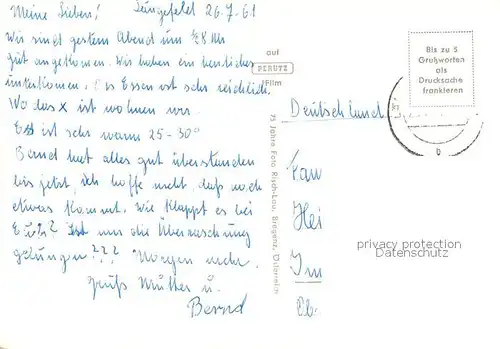 Meine Lieben! Längefeld 26.7.61
Wir sind gestern Abend um ½8 Uhr
gut angekommen. Wir haben ein herrliches
unterkommen. Das Essen ist sehr reichlich.
Wo das x ist wohnen wir.
Es ist sehr warm 25-30°
Bernd hat alles gut überstanden
bis jetzt, ich hoffe nicht, daß noch
etwas kommt. Wie klappt es bei
Euch? Ist uns die Überraschung
gelungen??? Morgen mehr.
Gruß Mutter u.
Bernd
auf
PERUTZ
Film
75 Jahre Foto Risch-Lau, Bregenz, Österreich
Bis zu 5
Grußworten
als
Drucksache
frankieren
Deutschland
Frau
Hei
Im
Ob.
privacy protection
Datenschutz